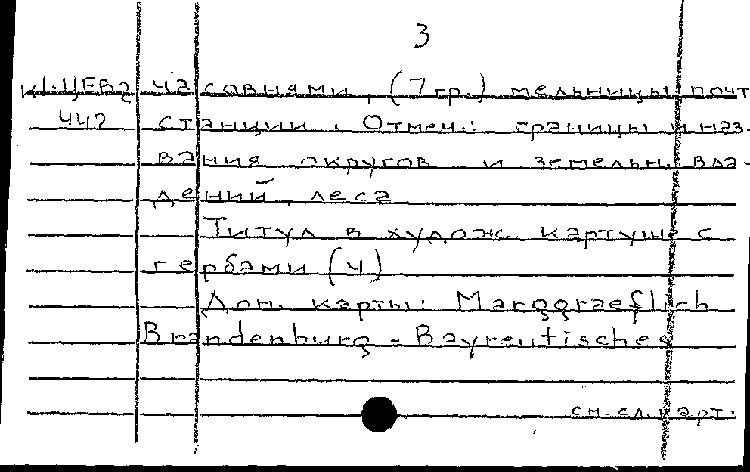 3
часовнями, (7 гр.) мельницы, почт.
442 станции. Отмеч.: границы и наз-
вания округов и земельн. вла-
дений, леса
Титул в худож. картуше с
гербами (4)
Доп. карты: Marggraeflich
Brandenburg-Bayreutisches
см.сл.карт.